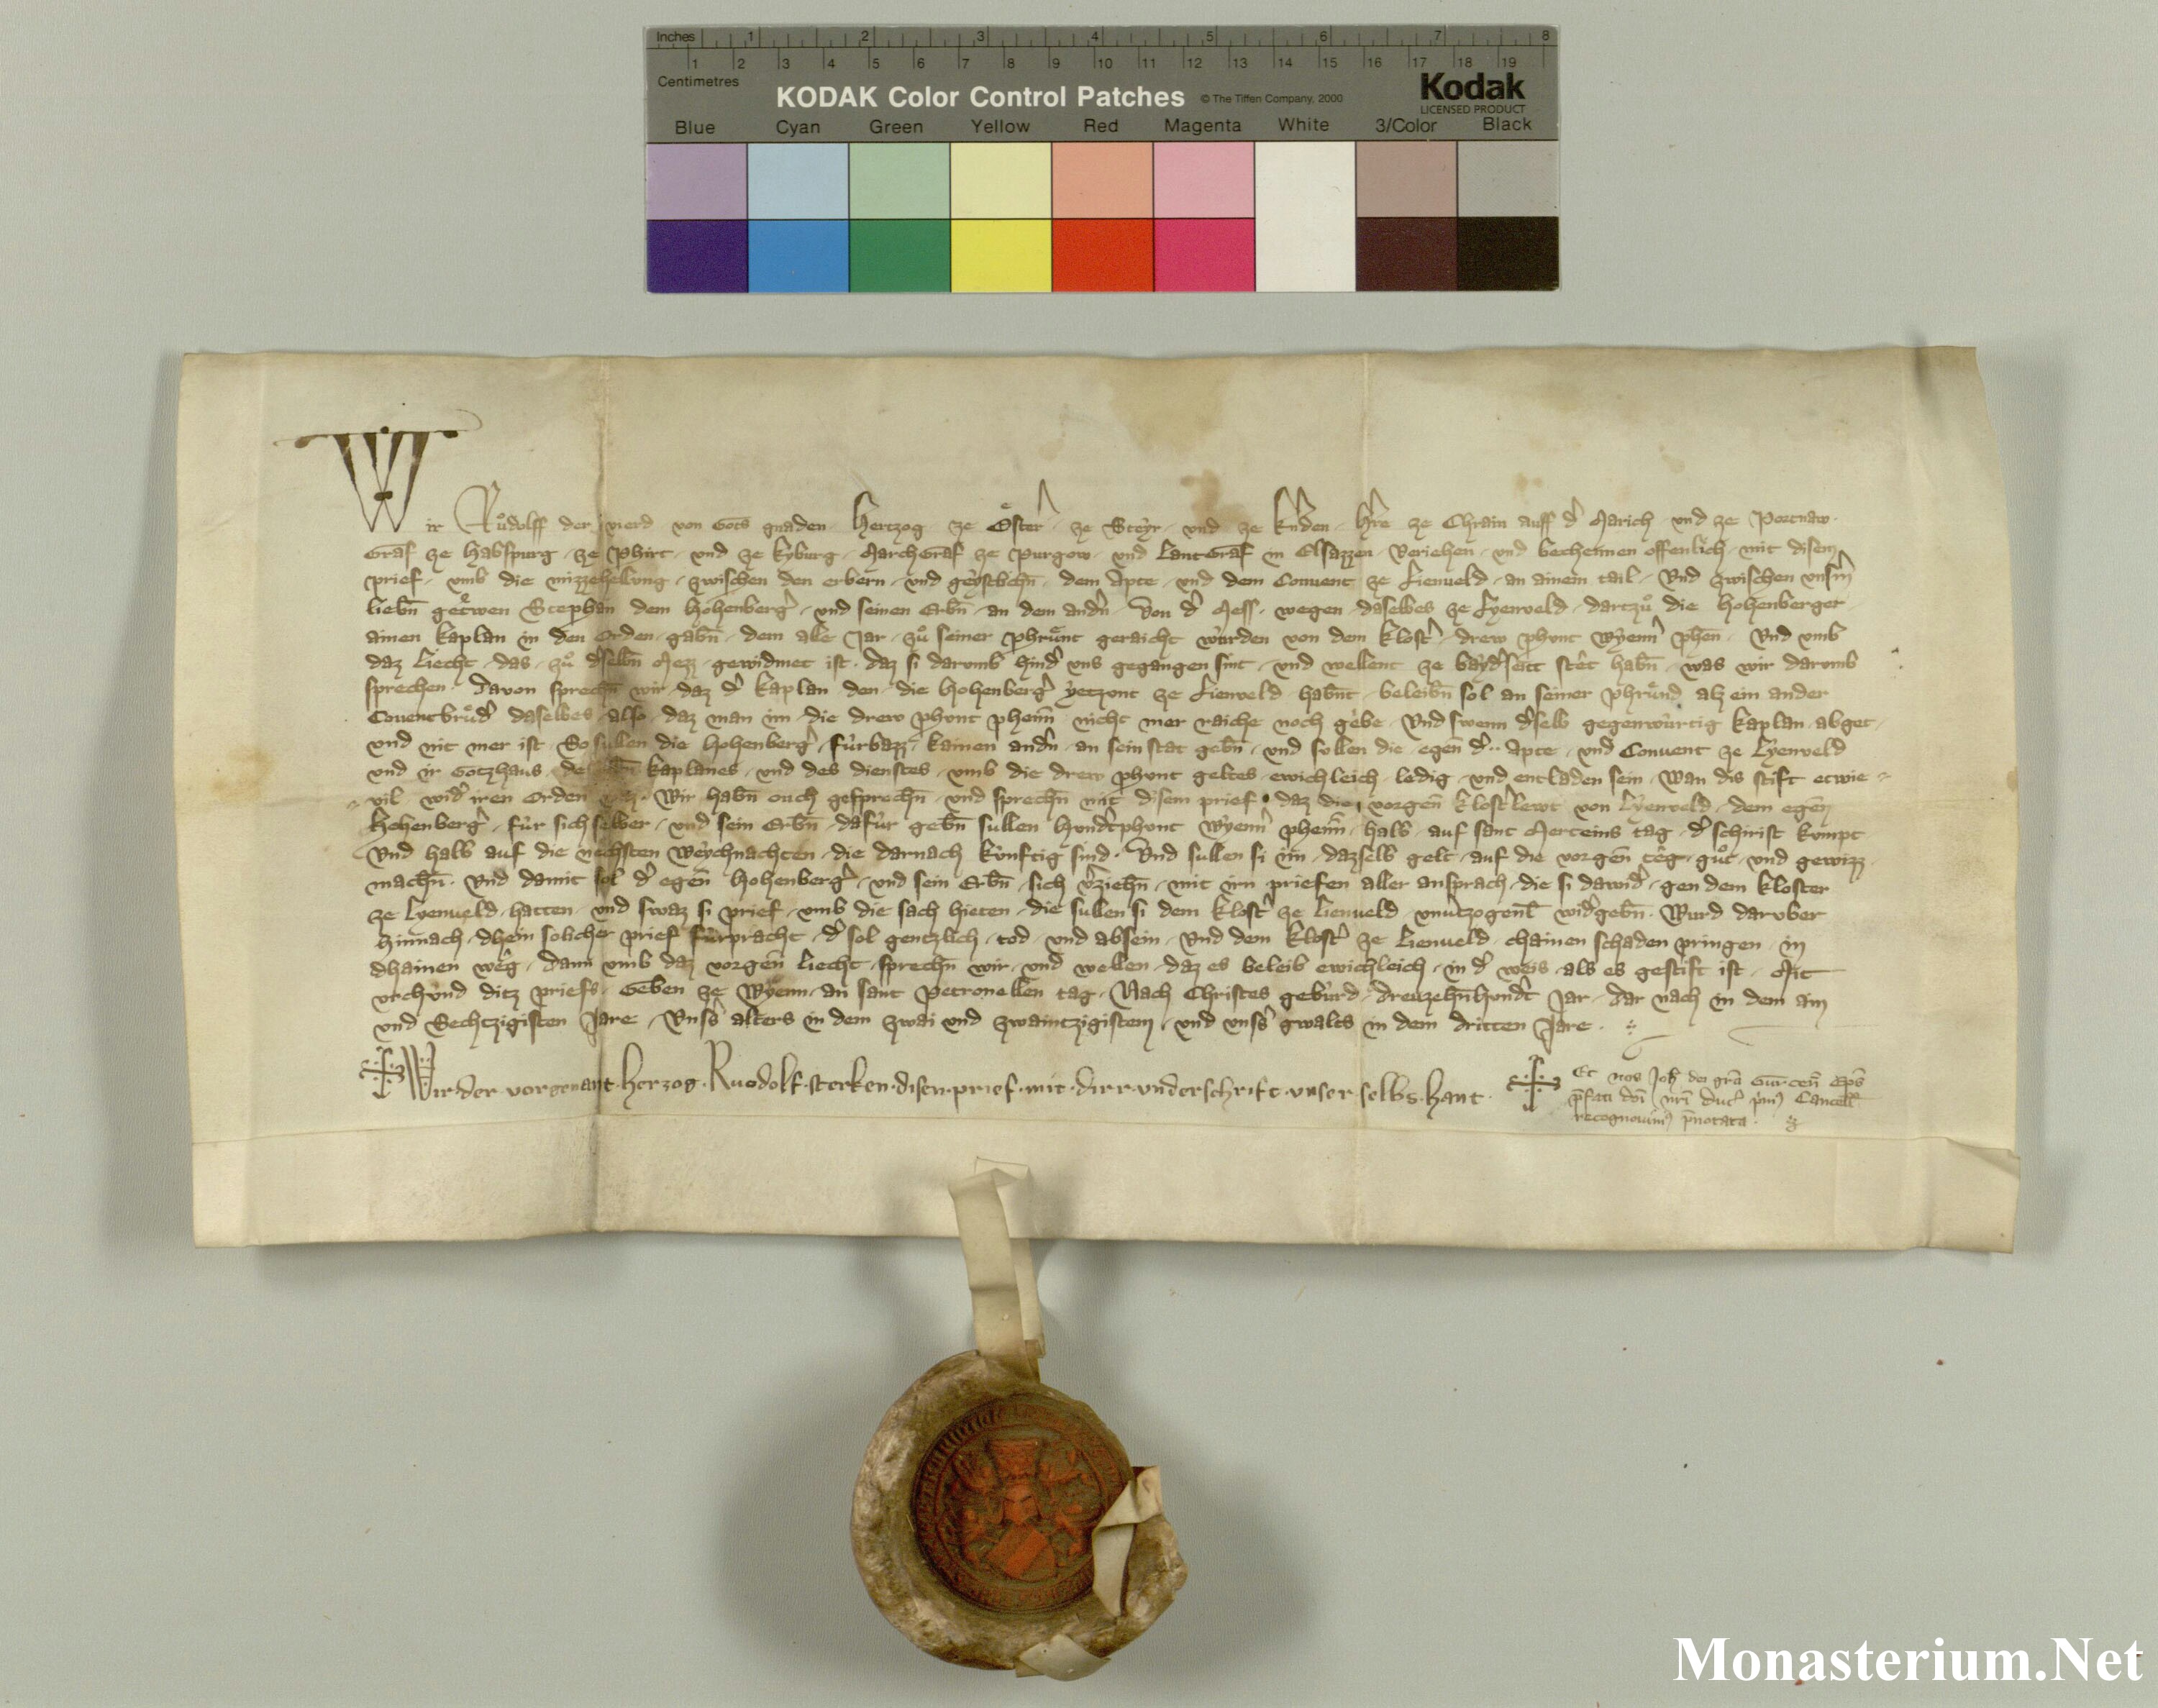 Inches 1 2 3 4 5 6 7 8
1 2 3 4 5 6 7 8 9 10 11 12 13 14 15 16 17 18 19
Centimetres
KODAK Color Control Patches © The Tiffen Company, 2000 Kodak
LICENSED PRODUCT
Blue Cyan Green Yellow Red Magenta White 3/Color Black
Wir Růdolff der vierd von Gots gnaden · Hertzog ze Ősterr̄ · ze Steyr · und ze Kernden · Hr̄re ze Chrain auff d' Marich · und ze Portnaw ·
Graf ze Habspurg · ze Phirt · und ze Kyburg · Marchgraf ze Purgow · und Lantgraf in Elsazzen · Veriehen · und bechennen offenlich · mit disem
prief · umb die mizzehellung · zwischen den erbern · und geystlichn̄ · dem Apte · und dem Convent ze Lienveld · an ainem tail · Und zwischen unserm
liebn̄ getrewen Stephan dem Hohenberg' · und seinen Erbn̄ · an dem andn̄ · Von d' Mess · wegen daselbes ze Lyenveld · dartzů die Hohenberger
ainen kaplan in den Orden · gabn̄ · dem alle Jar · zů seiner phrůnt geraicht wurden von dem klost' · drew phunt wyenn' phen̄ · Und umb
daz Liecht · das · zů d'selbn̄ Mezz · gewidmet ist · daz si darumb hind' uns gegangen sint · und wellent ze bayd'seitt stêt habn̄ · was wir darumb
sprechen · Davon sprechn̄ wir · daz d' kaplan den · die Hohenberg' yetzunt ze Lienveld · habnt · beleibn̄ sol an seiner phrůnd alz ein ander
Conventbrůd' daselbes · also · daz man im · die drew phunt phenn̄ · nicht mer raiche noch gebe · Und swenn d'selb gegenwurtig kaplan · abget ·
und nit mer ist · So sullen die Hohenberg' · fürbazz · kainen andn̄ · an sein stat gebn̄ · und sullen die · egen̄ d'·· apte · und Convent ze Lyenveld
und ir Gotzhaus · des selbn̄ kaplanes · und des dienstes · umb die drew phunt geltes · ewichleich · ledig · und entladen sein · wan dis stift etwie
vil · wid' iren Orden · Wir habn̄ ouch gesprochn̄ · und sprechn̄ mit disem prief · daz die vorgen̄ klost'lewt von Lyenveld · dem egen̄
Hohenberg' · für sich selber · und sein Erbn̄ · dafür gebn̄ sullen hund'tphunt wyenn' phenn̄ · halb · auf sant Merteins tag · d' schirist kumpt
Und halb auf die nechsten weychnachten · die darnach künftig sind · Und sullen si im · dazselb gelt · auf die vorgen̄ têg · gůt · und gewizz ·
machn̄ · Und damit sol d' egen̄ Hohenberg' · und sein Erbn̄ · sich v'ziehn̄ · mit irn priefen aller ansprach · die si dawid' · gen dem kloster
ze Lyenveld · hatten · und swaz si prief · umb die sach hieten · die sullen si dem klost' ze Lienveld · unv'tzogenl̄ wid'gebn̄ · Wurd daruber
hinnach · dhein solicher prief fürpracht · d' sol gentzlich · tod · und absein · Und dem klost' ze Lienveld · chainen schaden pringen · in
dhainen wêg · Dann umb daz vorgen̄ Liecht · sprechn̄ wir · und wellen · daz es beleib ewichleich · in d' weis · als es gestift ist · Mit
urchund ditz priefs · Geben ze wyenn · an sant Petronellen tag · Nach Christes gebürd · dreuzehn̄hund't Jar · dar nach in dem ain
und Sechtzigisten Jare · Uns's alters in dem zwai und zwaintzigistem · und uns's gwalts in dem dritten Jare ·
Wir·der·vorgenant·herzog·Ruodolf·sterken·disen·prief·mit·dirr·underschrift·unser·selbs·hant·
Et nos Joh̄ dei grā Gurcen̄ ep̄s
p̄fati dn̄i nr̄i Duc' pm̄ Cancell'
recognovim' p̄notata ·
Monasterium.Net